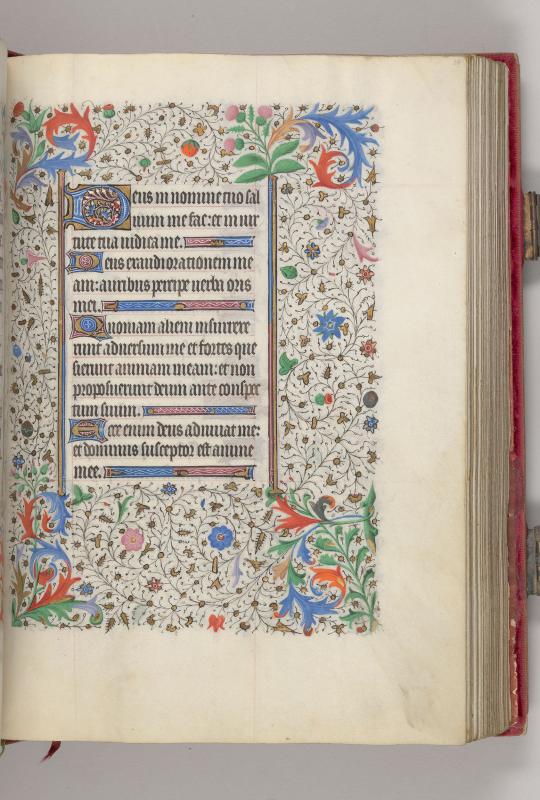 Deus in nomine tuo sal
uum me fac: et in uir
tute tua iudica me.
Deus exaudi orationem me
am: auribus percipe uerba oris
mei.
Quoniam alieni insurrexe
runt aduersum me et fortes que
sierunt animam meam: et non
proposuerunt deum ante conspec
tum suum.
Ecce enim deus adiuuat me:
et dominus susceptor est anime
mee.